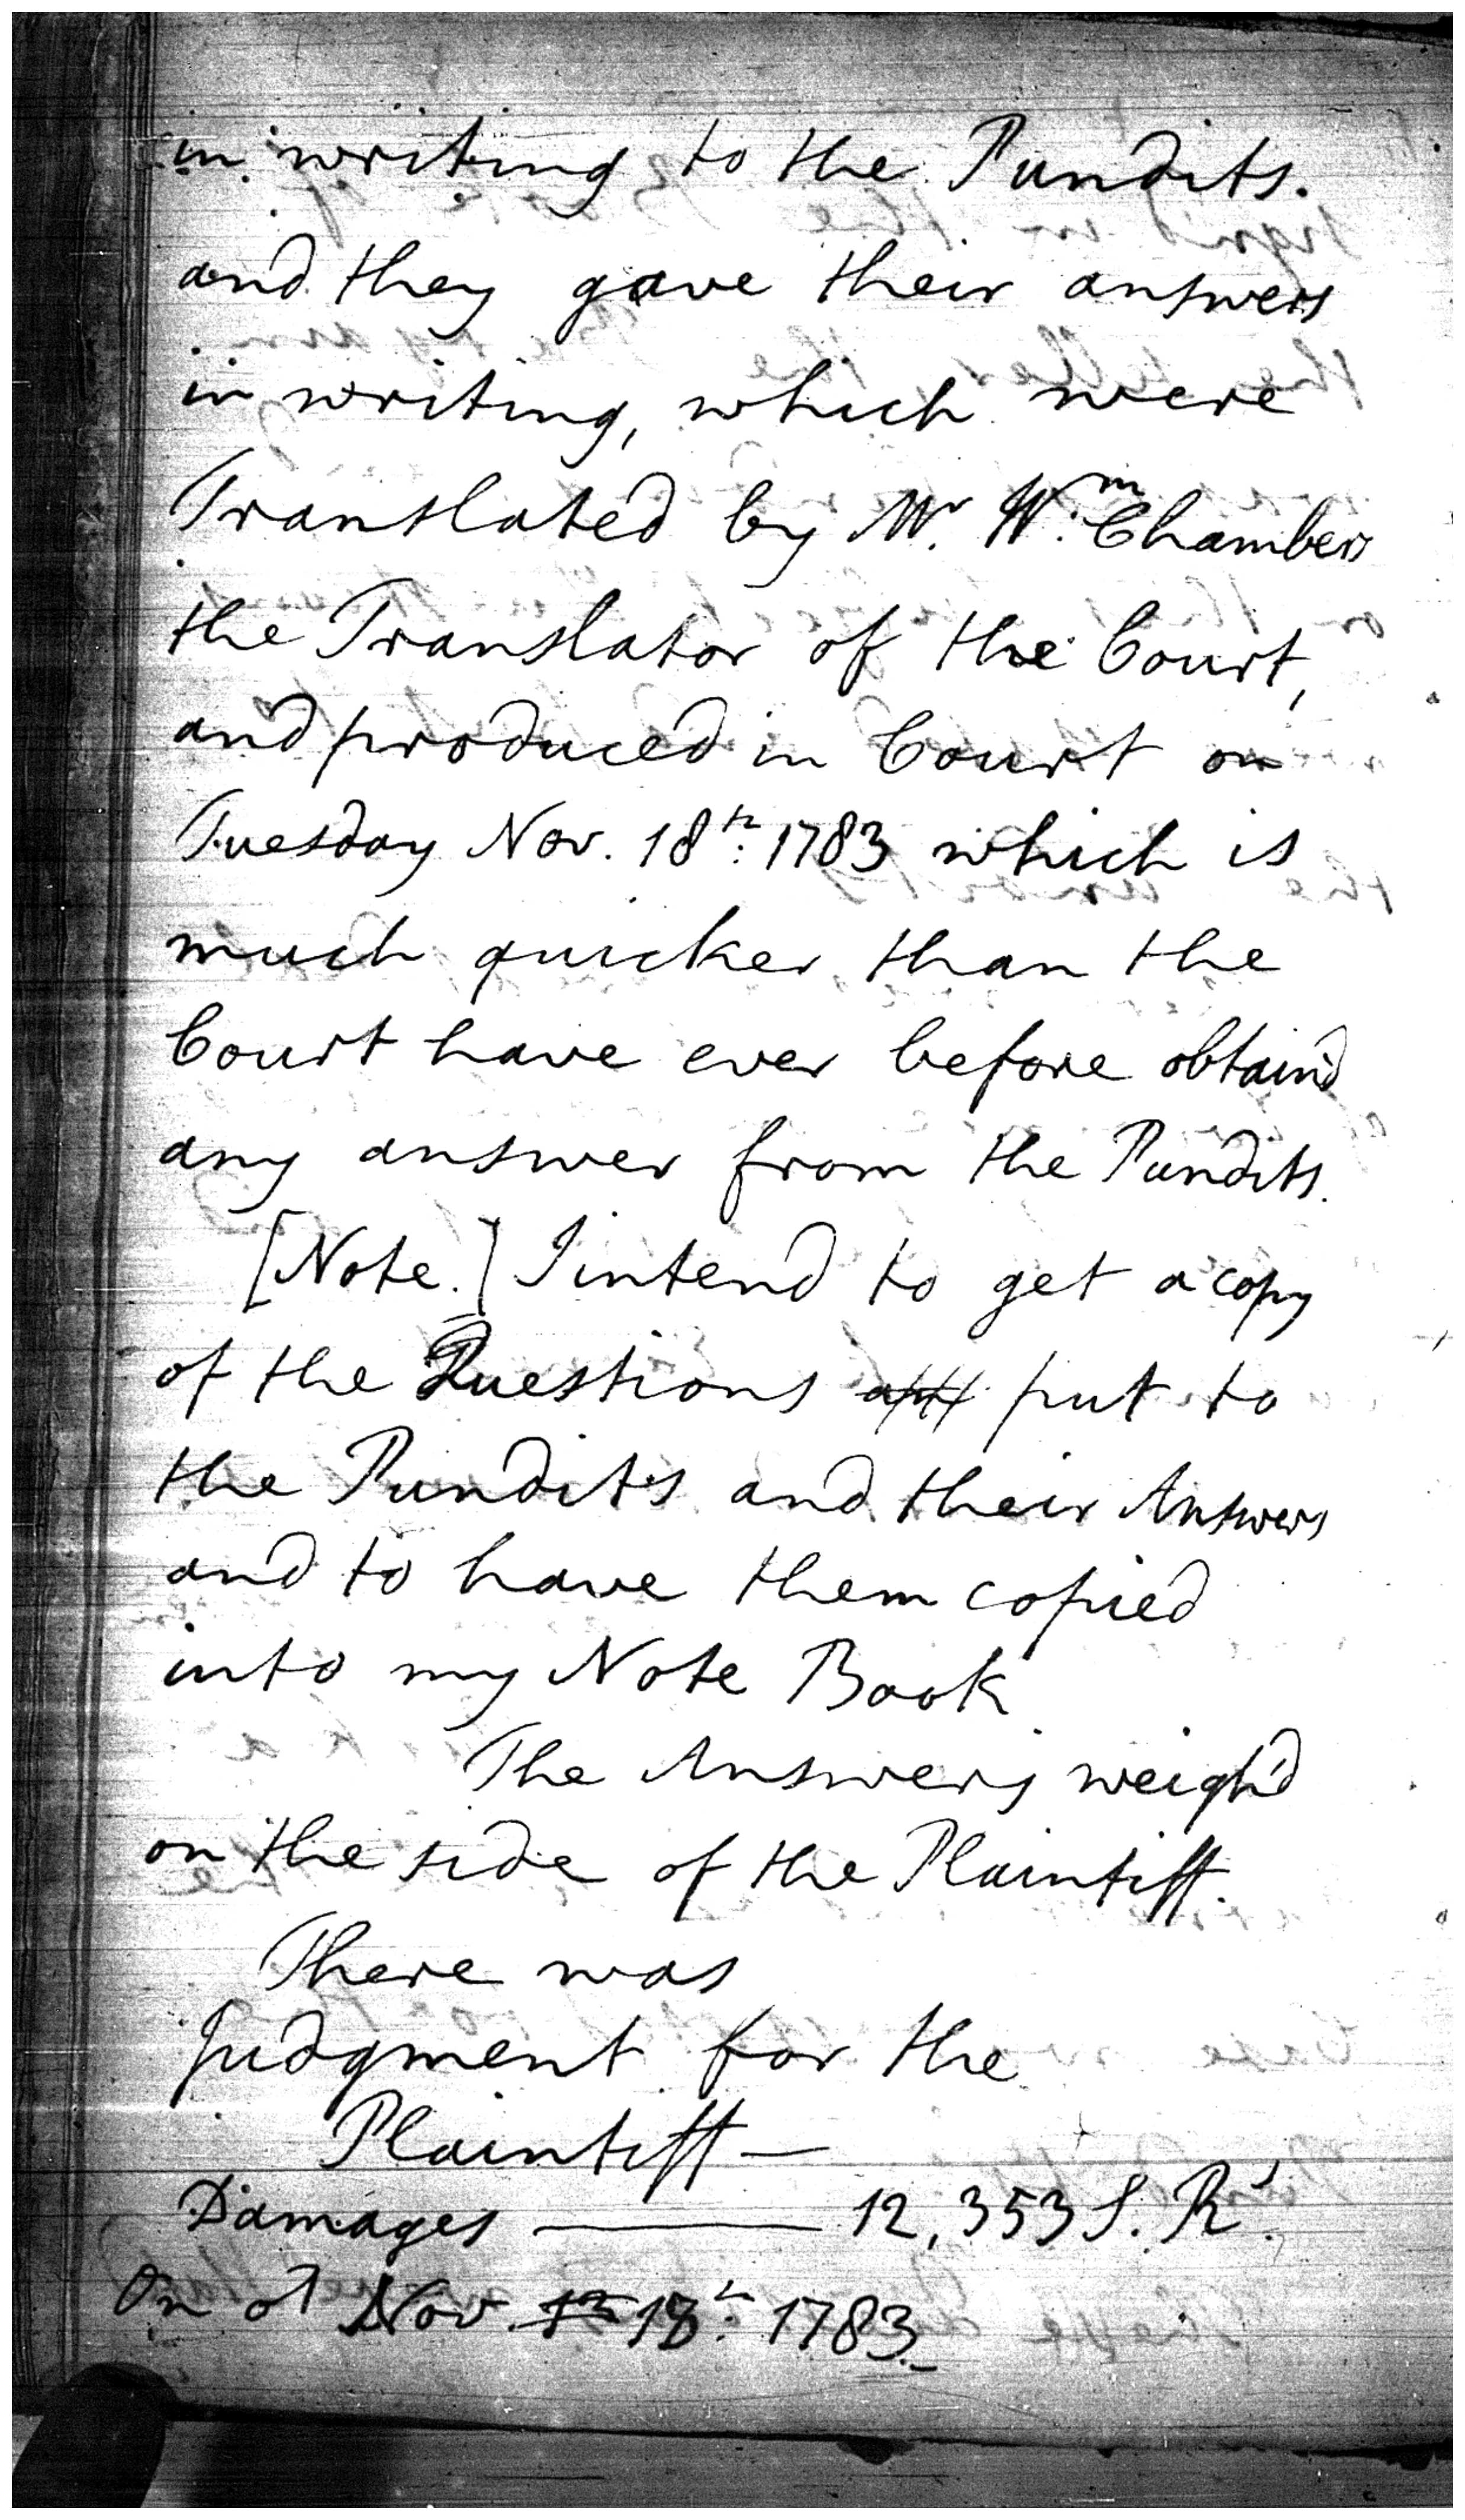 in writing to the Pundits.
and they gave their answers
in writing, which were
Translated by Mr. Wm. Chambers
the Translator of the Court,
and produced in Court on
Tuesday Nov. 18th. 1783 which is
much quicker than the
Court have ever before obtain'd
any answer from the Pundits.
[Note.] I intend to get a copy
of the Questions put to
the Pundits and their Answers
and to have them copied
into my Note Book
The Answers weigh'd
on the side of the Plaintiff.
There was
Judgment for the
Plaintiff —
Damages — 12,353 S. Rs.
On Nov. 18th. 1783.